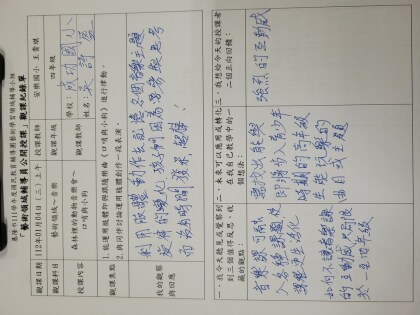 基隆市111學年度國民教育輔導團藝術學習領域輔導小組
「藝術領域輔導員公開授課」觀課紀錄單
觀課日期 112年01月04日（三）上午 授課教師 安樂國小 王貴琪
觀課科目 藝術領域～音樂 觀課年級 四年級
授課內容 森林裡的動物音樂會～
口哨與小狗 觀課教師 學校：成功國小
姓名：吳詩盈
觀課焦點 1.能運用肢體即興跟隨樂曲《口哨與小狗》進行律動。
2.與同伴討論運用肢體創作一段表演。
我的觀察
與回應
利用肢體動作去記憶各個音樂主題
旋律的變化，孩子們因為要旁與思考
而沒有時間發呆、結舉！
一、我今天聽見或覺察到
到三個值得反思、收
藏的觀點：
音樂課可融
入各種課題使
課程更生活化
如何不讓音樂課
的互動感只局限
於一至四年級
二、未來可以應用或轉化
在我自己教學中的一
個想法：
需找出能與
即將步入青少年
時期的高年級
生能玩樂的
曲目或主題
三、我想給今天的授課者
二個正向回饋：
強烈的互動感